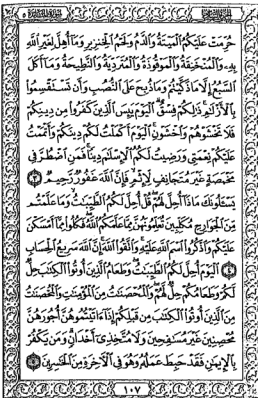 حُرِّمَتْ عَلَيْكُمُ الْمَيْتَةُ وَالدَّمُ وَلَحْمُ الْخِنزِيرِ وَمَا أُهِلَّ لِغَيْرِ اللَّهِ
بِهِ وَالْمُنْخَنِقَةُ وَالْمَوْقُوذَةُ وَالْمُتَرَدِّيَةُ وَالنَّطِيحَةُ وَمَا أَكَلَ
السَّبُعُ إِلَّا مَا ذَكَّيْتُمْ وَمَا ذُبِحَ عَلَى النُّصُبِ وَأَن تَسْتَقْسِمُوا
بِالْأَزْلَٰمِ ذَٰلِكُمْ فِسْقٌ الْيَوْمَ يَئِسَ الَّذِينَ كَفَرُوا مِن دِينِكُمْ
فَلَا تَخْشَوْهُمْ وَاخْشَوْنِ الْيَوْمَ أَكْمَلْتُ لَكُمْ دِينَكُمْ وَأَتْمَمْتُ
عَلَيْكُمْ نِعْمَتِي وَرَضِيتُ لَكُمُ الْإِسْلَٰمَ دِينًا فَمَنِ اضْطُرَّ فِي
مَخْمَصَةٍ غَيْرَ مُتَجَانِفٍ لِّإِثْمٍ فَإِنَّ اللَّهَ غَفُورٌ رَّحِيمٌ ٣
يَسْـَٔلُونَكَ مَاذَا أُحِلَّ لَهُمْ قُلْ أُحِلَّ لَكُمُ الطَّيِّبَٰتُ وَمَا عَلَّمْتُم
مِّنَ الْجَوَارِحِ مُكَلِّبِينَ تُعَلِّمُونَهُنَّ مِمَّا عَلَّمَكُمُ اللَّهُ فَكُلُوا مِمَّا أَمْسَكْنَ
عَلَيْكُمْ وَاذْكُرُوا اسْمَ اللَّهِ عَلَيْهِ وَاتَّقُوا اللَّهَ إِنَّ اللَّهَ سَرِيعُ الْحِسَابِ
٤ الْيَوْمَ أُحِلَّ لَكُمُ الطَّيِّبَٰتُ وَطَعَامُ الَّذِينَ أُوتُوا الْكِتَٰبَ حِلٌّ
لَّكُمْ وَطَعَامُكُمْ حِلٌّ لَّهُمْ وَالْمُحْصَنَٰتُ مِنَ الْمُؤْمِنَٰتِ وَالْمُحْصَنَٰتُ
مِنَ الَّذِينَ أُوتُوا الْكِتَٰبَ مِن قَبْلِكُمْ إِذَا ءَاتَيْتُمُوهُنَّ أُجُورَهُنَّ
مُحْصِنِينَ غَيْرَ مُسَٰفِحِينَ وَلَا مُتَّخِذِي أَخْدَانٍ وَمَن يَكْفُرْ
بِالْإِيمَٰنِ فَقَدْ حَبِطَ عَمَلُهُ وَهُوَ فِي الْآخِرَةِ مِنَ الْخَٰسِرِينَ ٥
١٠٧